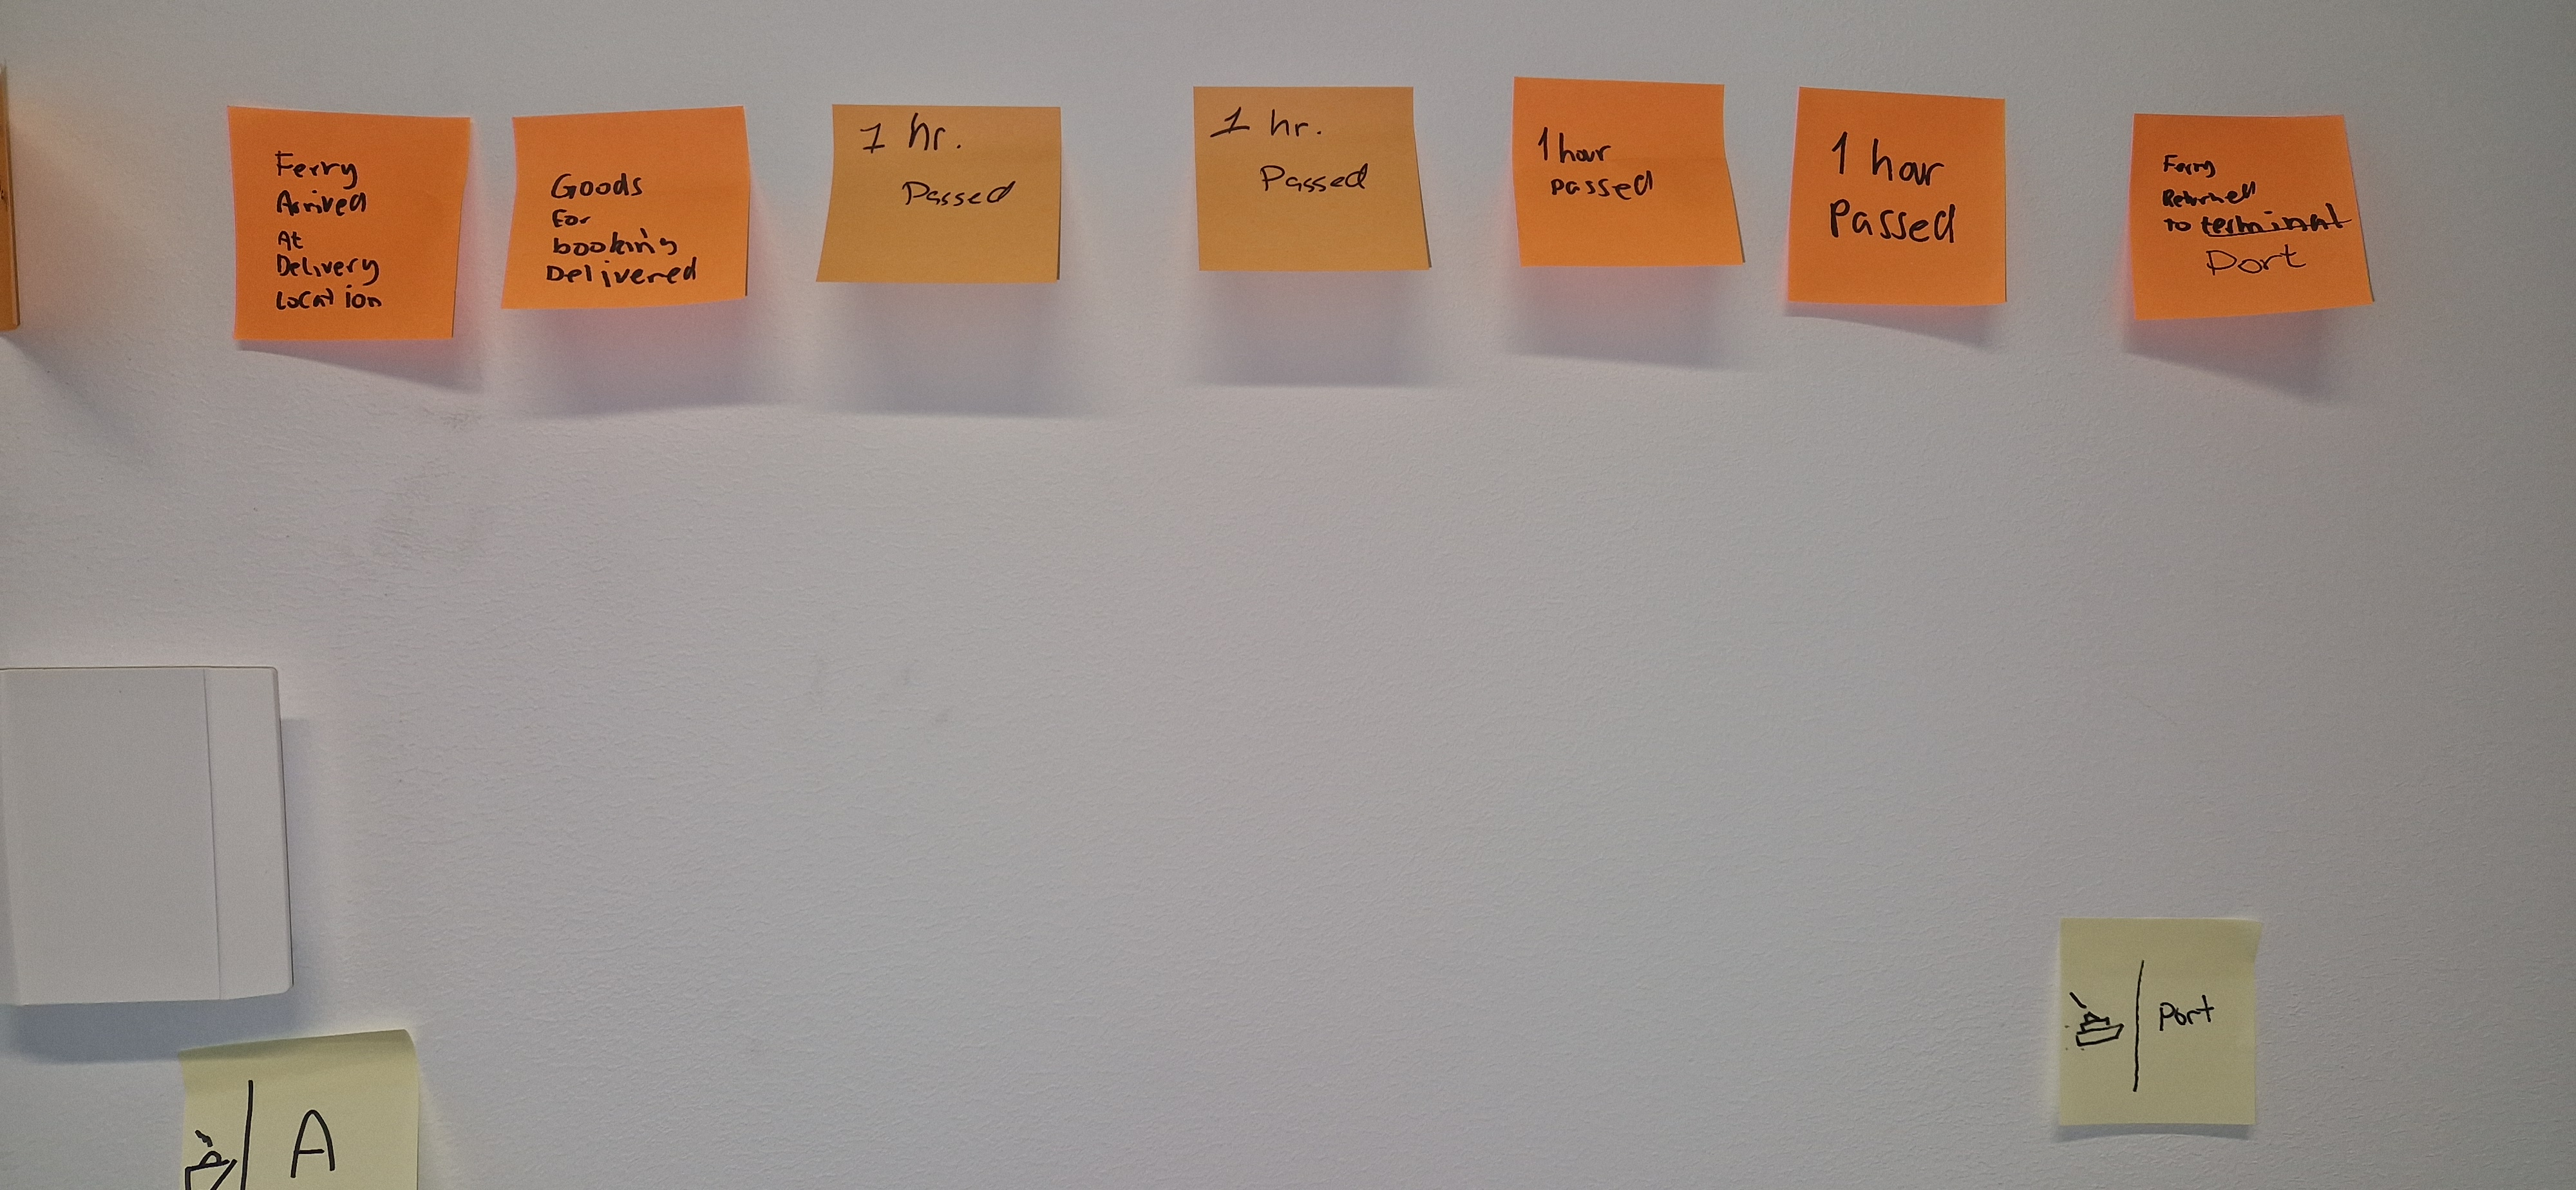 Ferry
Arrived
At
Delivery
Location
Goods
For
booking
Delivered
1 hr.
Passed
1 hr.
Passed
1 hour
passed
1 hour
Passed
Ferry
Returned
to terminal
Port
Port
A